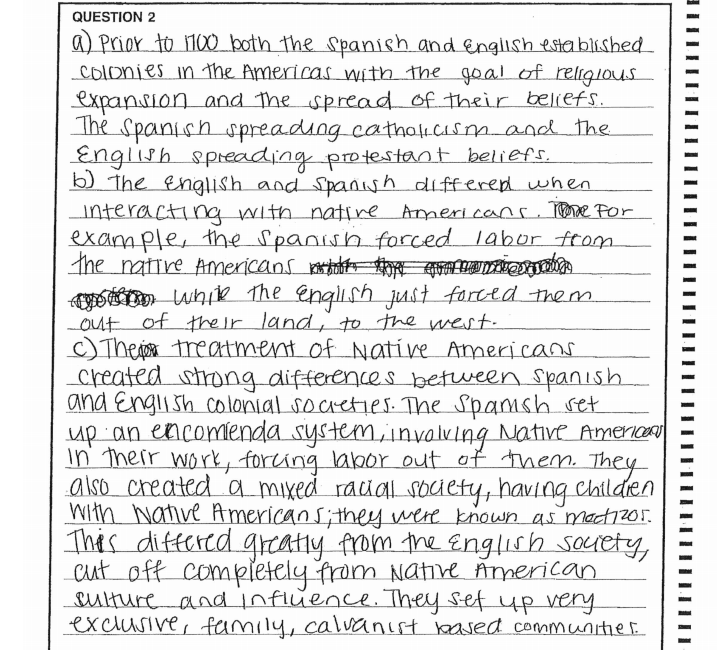 QUESTION 2
a) Prior to 1700 both the Spanish and English established
colonies in the Americas with the goal of religious
expansion and the spread of their beliefs.
The Spanish spreading catholicism and the
English spreading protestant beliefs.
b) The English and Spanish differed when
interacting with native Americans. For
example, the Spanish forced labor from
the native Americans
while the English just forced them
out of their land, to the west.
c) The treatment of Native Americans
created strong differences between Spanish
and English colonial societies. The Spanish set
up an encomienda system, involving Native Americans
in their work, forcing labor out of them. They
also created a mixed racial society, having children
with Native Americans; they were known as meztizos.
This differed greatly from the English society,
cut off completely from Native American
culture and influence. They set up very
exclusive, family, calvanist based communities.